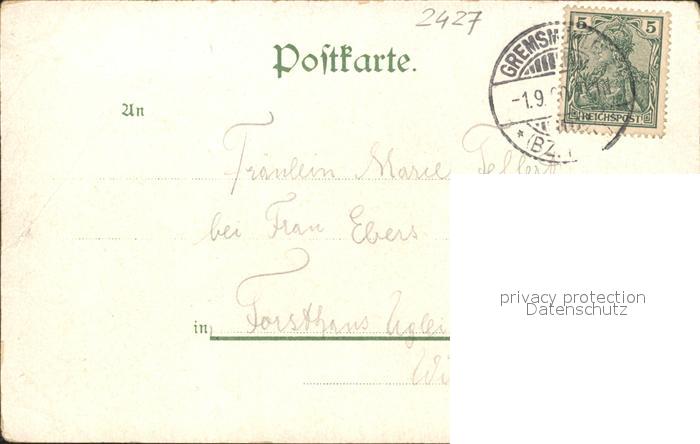 2427
Postkarte.
5 5
REICHSPOST
GREMSM
-1.9.
* (BZ.
An
Fräulein Marie
bei Frau Ebers
in Forsthaus Uglei
privacy protection
Datenschutz